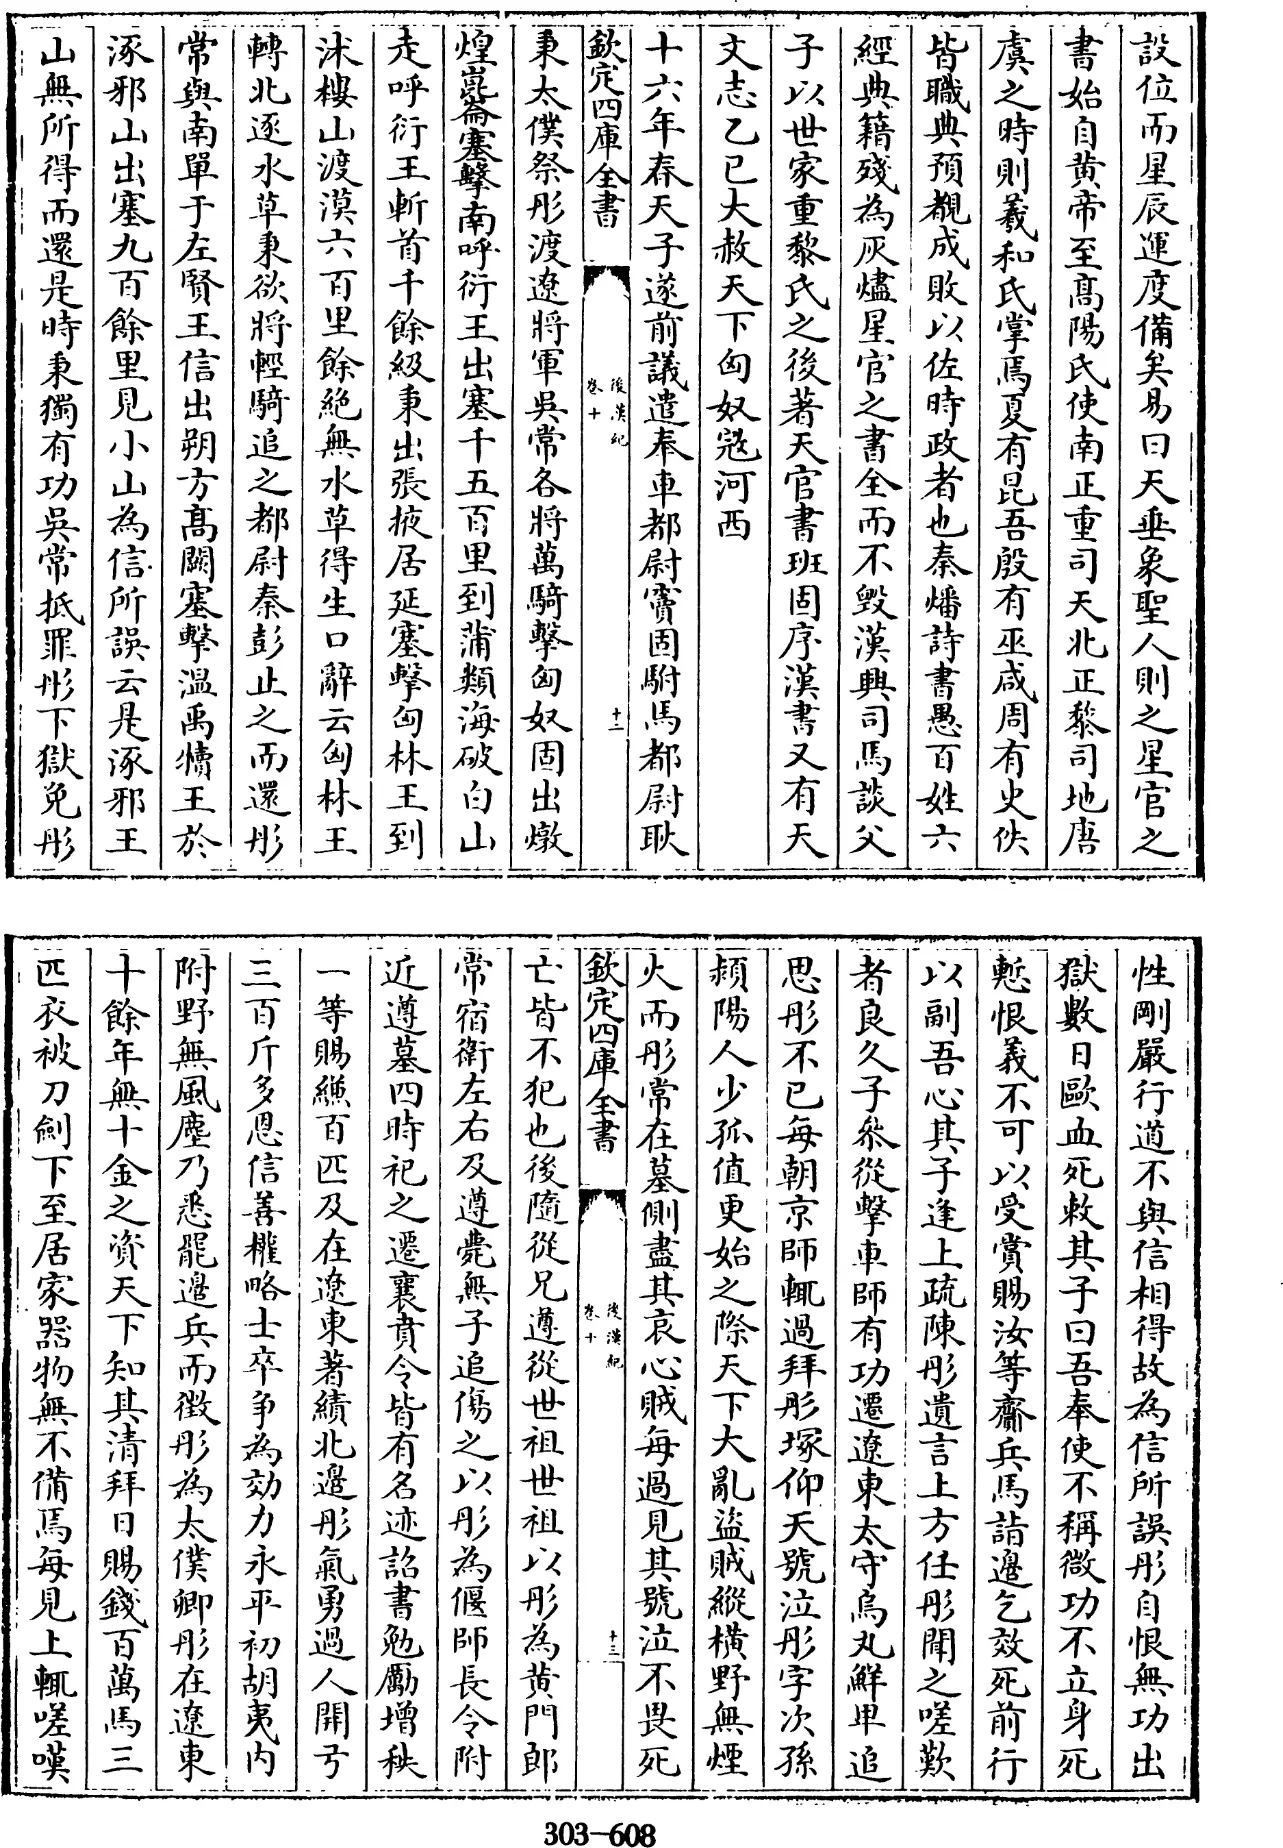 設位而星辰運度備矣易曰天垂象聖人則之星官之
書始自黄帝至髙陽氏使南正重司天北正黎司地唐
虞之時則羲和氏掌焉夏有昆吾殷有巫咸周有史佚
皆職典預覩成敗以佐時政者也秦燔詩書愚百姓六
經典籍殘為灰燼星官之書全而不毁漢興司馬談父
子以世家重黎氏之後著天官書班固序漢書又有天
文志乙已大赦天下匈奴冦河西
十六年春天子遂前議遣奉車都尉竇固駙馬都尉耿
欽定四庫全書
後漢紀
卷十
十二
秉太僕祭肜渡遼將軍吳常各將萬騎擊匈奴固出燉
煌崑崙塞擊南呼衍王出塞千五百里到蒲類海破白山
走呼衍王斬首千餘級秉出張掖居延塞擊匈林王到
沭樓山渡漠六百里餘絶無水草得生口辭云匈林王
轉北逐水草秉欲將輕騎追之都尉秦彭止之而還肜
常與南單于左賢王信出朔方髙闕塞擊温禺犢王於
涿邪山出塞九百餘里見小山為信所誤云是涿邪王
山無所得而還是時秉獨有功吳常抵罪肜下獄免肜
性剛嚴行道不與信相得故為信所誤肜自恨無功出
獄數日歐血死敕其子曰吾奉使不稱微功不立身死
慙恨義不可以受賞賜汝等齎兵馬詣邊乞效死前行
以副吾心其子逢上疏陳肜遺言上方任肜聞之嗟歎
者良久子叅從擊車師有功遷遼東太守烏丸鮮卑追
思肜不已每朝京師輒過拜肜塚仰天號泣肜字次孫
頴陽人少孤值更始之際天下大亂盜賊縱橫野無煙
火而肜常在墓側盡其哀心賊每過見其號泣不畏死
欽定四庫全書
後漢紀
卷十
十三
亡皆不犯也後隨從兄遵從世祖世祖以肜為黄門郎
常宿衛左右及遵薨無子追傷之以肜為偃師長令附
近遵墓四時祀之遷襄賁令皆有名迹詔書勉勵增秩
一等賜縑百匹及在遼東著績北邊肜氣勇過人開弓
三百斤多恩信善權略士卒争為効力永平初胡夷内
附野無風塵乃悉罷邊兵而徴肜為太僕卿肜在遼東
十餘年無十金之資天下知其清拜日賜錢百萬馬三
匹衣被刀劍下至居家器物無不備焉每見上輒嗟嘆
303-608